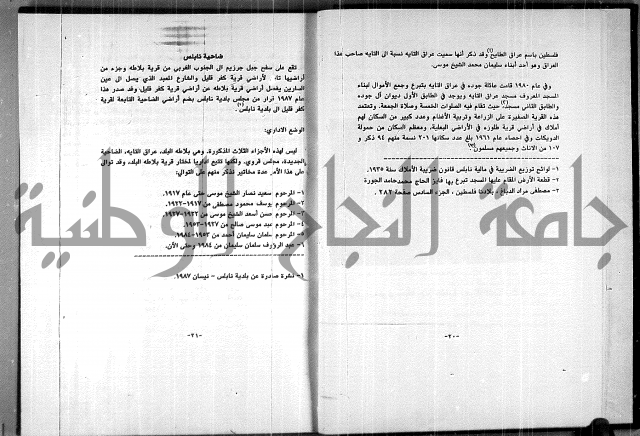 فلسطين باسم عراق الطايح(١) وقد ذكر أنها سميت عراق التايه نسبة الى التايه صاحب هذا
العراق وهو أحد أبناء سليمان محمد الشيخ موسى.
وفي عام ١٩٨٠ قامت عائلة جوده في عراق التايه بتبرع وجمع الأموال لبناء
المسجد المعروف مسجد عراق التايه ويوجد في الطابق الأول ديوان آل جوده
والطابق الثاني مسجد(٢) حيث تقام فيه الصلوات الخمسة وصلاة الجمعة. وتعتمد
هذه القرية الصغيرة على الزراعة وتربية الأغنام وعدد كبير من السكان لهم
أملاك في أراضي قرية طلوزه في الأراضي البعلية، ومعظم السكان من حمولة
الدويكات وفي احصاء عام ١٩٦١ بلغ عدد سكانها ٢٠١ نسمة منهم ٩٤ ذكر و
١٠٧ من الاناث وجميعهم مسلمون(٣)
١- لوائح توزيع الضريبة في مالية نابلس قانون ضريبة الأملاك سنة ١٩٣٥
٢- قطعة الأرض المقام عليها المسجد تبرع بها فايز الحاج محمد حامد الجورة
٣- مصطفى مراد الدباغ، بلادنا فلسطين، الجزء السادس صفحة ٢٨٢
-٢٠-
ضاحية نابلس
تقع على سفح جبل جرزيم الى الجنوب الغربي من قرية بلاطه وجزء من
أراضيها تابع لأراضي قرية كفر قليل والشارع المعبد الذي يصل الى عين
الصارين يفصل أراضي قرية بلاطه عن أراضي قرية كفر قليل وقد صدر هذا
عام ١٩٨٧ قرار من مجلس بلدية نابلس بضم أراضي الضاحية التابعة لقرية
كفر قليل الى بلدية نابلس.(١)
الوضع الاداري:
ليس لهذه الأجزاء الثلاث المذكورة، وهي بلاطه البلد، عراق التايه، الضاحية
الجديدة، مجلس قروي، ولكنها تتبع اداريا لمختار قرية بلاطه البلد، وقد توالى
على هذا الأمر عدة مخاتير نذكر منهم على التوالي:
١- المرحوم سعيد نصار الشيخ موسى حتى عام ١٩١٧.
٢- المرحوم يوسف محمود مصطفى من ١٩١٧-١٩٢٢.
٣- المرحوم حسن أسعد الشيخ موسى من ١٩٢٢-١٩٢٧.
٤- المرحوم عبد موسى صالح من ١٩٢٧-١٩٥٣.
٥- المرحوم سلمان سليمان أحمد من ١٩٥٣-١٩٨٤.
٦- عبد الرؤوف سلمان سليمان من ١٩٨٤ وحتى الآن.
١- نشرة صادرة عن بلدية نابلس - نيسان ١٩٨٧.
-٢١-
جامعة النجاح الوطنية